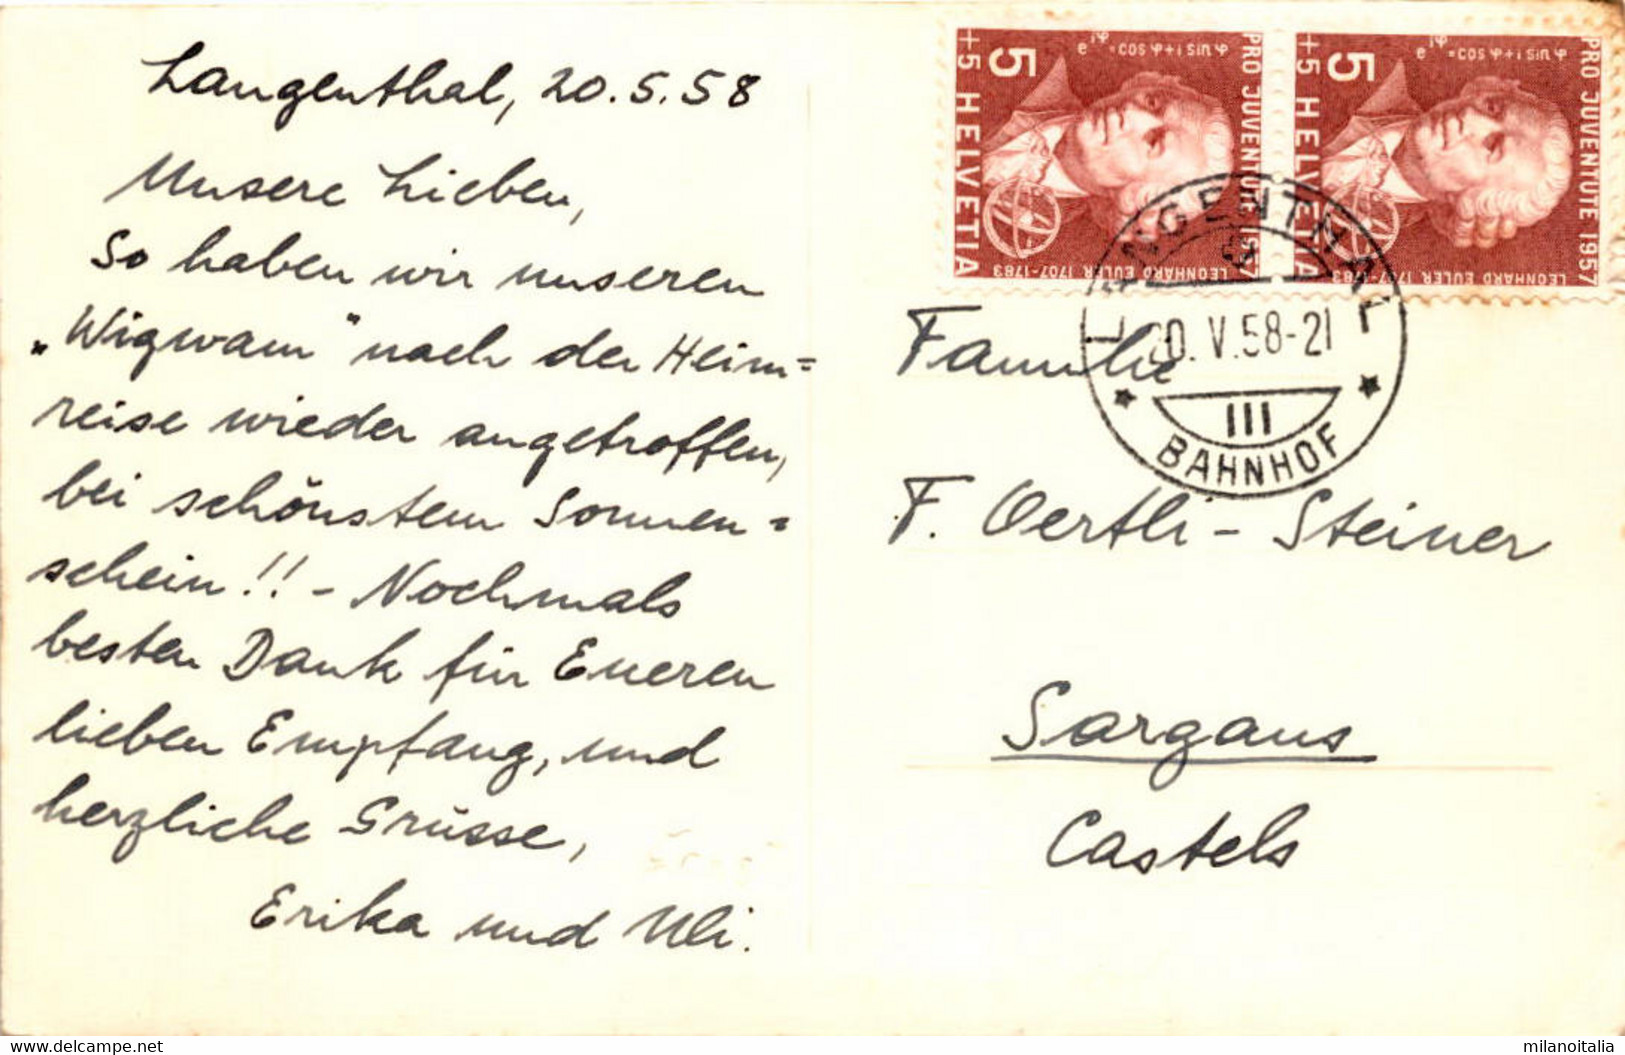 Langenthal, 20.5.58
Unsere Lieben,
So haben wir unseren
„Wigwam" nach der Heim=
reise wieder angetroffen,
bei schönstem Sonnen=
schein!! - Nochmals
besten Dank für Eueren
lieben Empfang, und
herzliche Grüsse,
Erika und Uli.
PRO JUVENTUTE 1957
5
+5 HELVETIA
LEONHARD EULER 1707-1783
e^iφ = cos φ + i sin φ
PRO JUVENTUTE 1957
5
+5 HELVETIA
LEONHARD EULER 1707-1783
e^iφ = cos φ + i sin φ
LANGENTHAL
20.V.58-21
III
BAHNHOF
Familie
F. Oertli - Steiner
Sargans
Castels
delcampe.net
milanoitalia